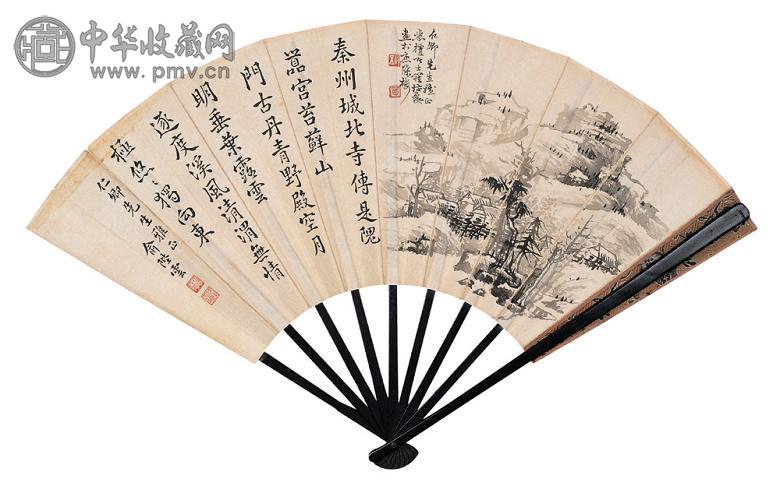 中华收藏网
www.pmv.cn
仁卿先生
秦州城北寺傳是隗
囂宮苔蘚山
門古丹青野殿空月
明垂葉露雲
逐度溪風清渭無情
極悠〻獨向東
仁卿先生雅正俞陛雲